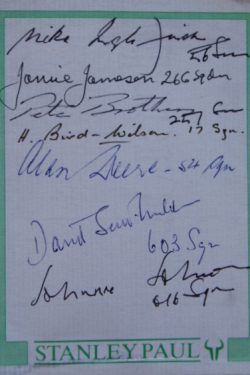 Mike
56 Sqn
Jamie Jameson 266 Sqdn
Pete Brothers
257 Sqn
H. Bird-Wilson. 17 Sqn.
Alan Deere - 54 Sqn
David Scott-Malden
603 Sqn
Johnnie Johnson
616 Sqn
STANLEY PAUL